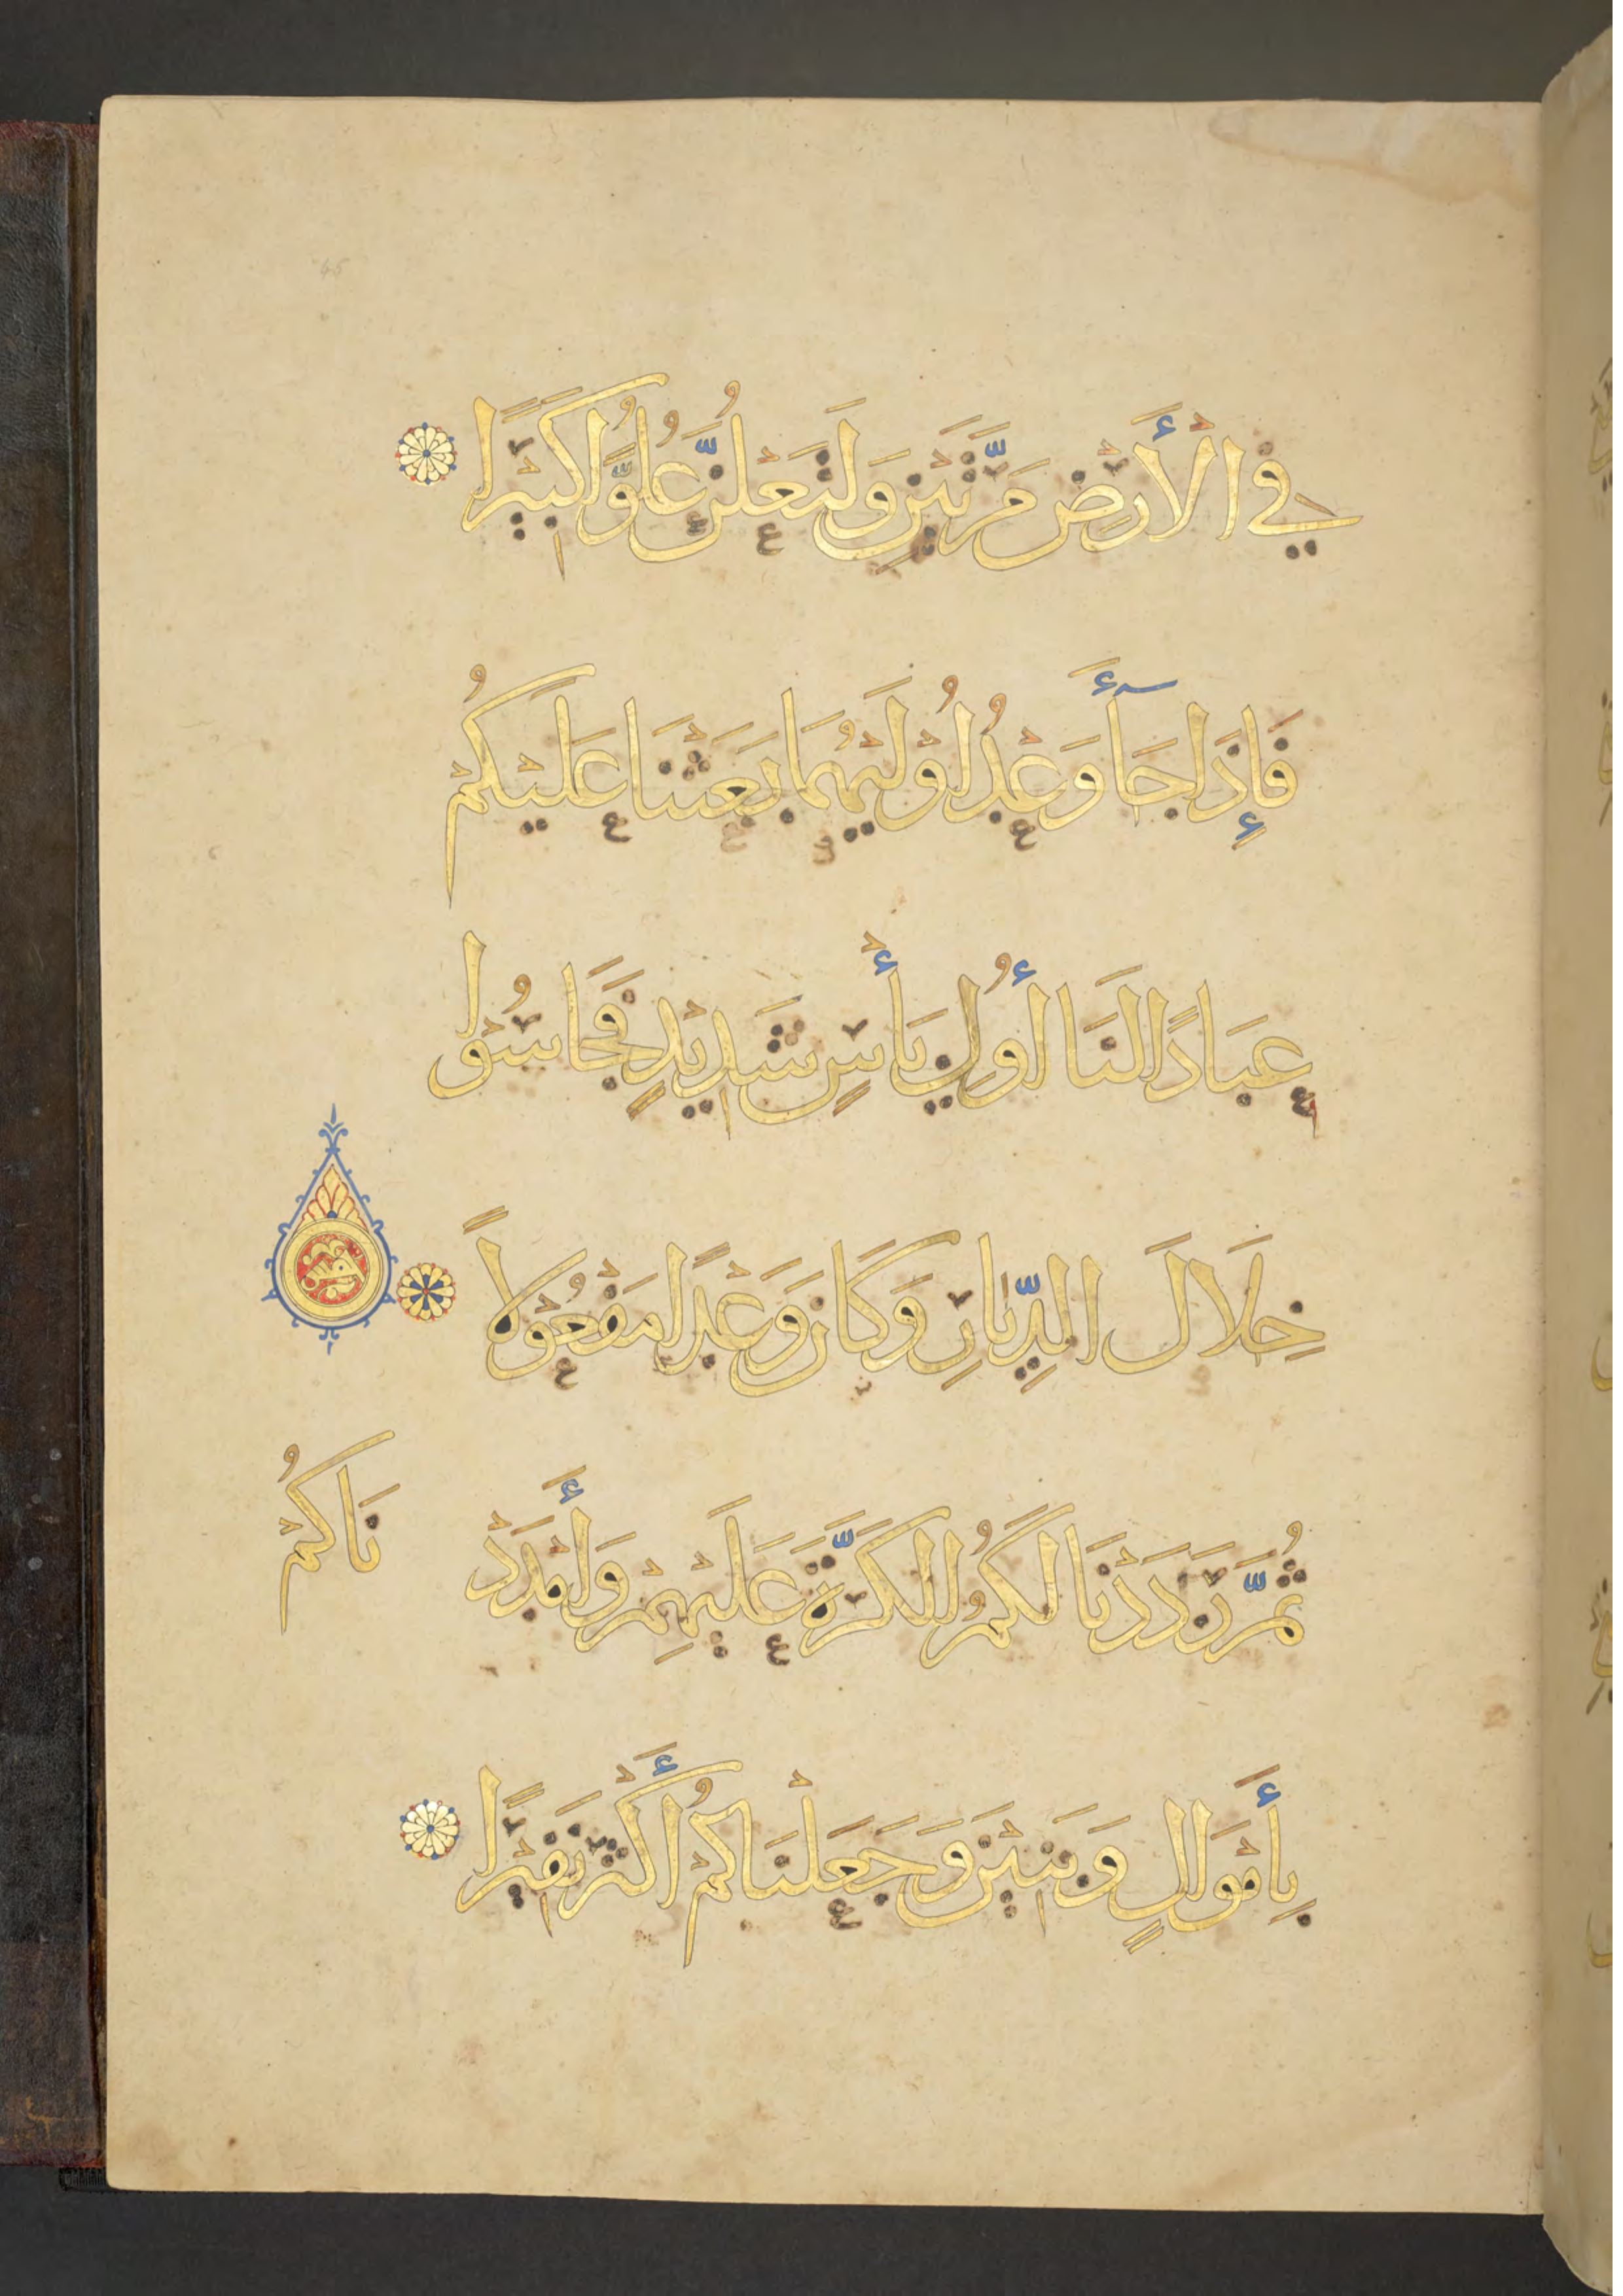 فِي الْأَرْضِ مَرَّتَيْنِ وَلَتَعْلُنَّ عُلُوًّا كَبِيْرًا
فَإِذَا جَآءَ وَعْدُ اُوْلَيٰهُمَا بَعَثْنَا عَلَيْكُمْ
عِبَادًا لَنَا أُولِي بَأْسٍ شَدِيْدٍ فَجَاسُوْا
خِلَالَ الدِّيَارِ وَكَانَ وَعْدًا مَفْعُوْلًا
ثُمَّ رَدَدْنَا لَكُمُ الْكَرَّةَ عَلَيْهِمْ وَأَمْدَدْ
نَاكُمْ
بِأَمْوَالٍ وَبَنِيْنَ وَجَعَلْنَاكُمْ أَكْثَرَ نَفِيْرًا